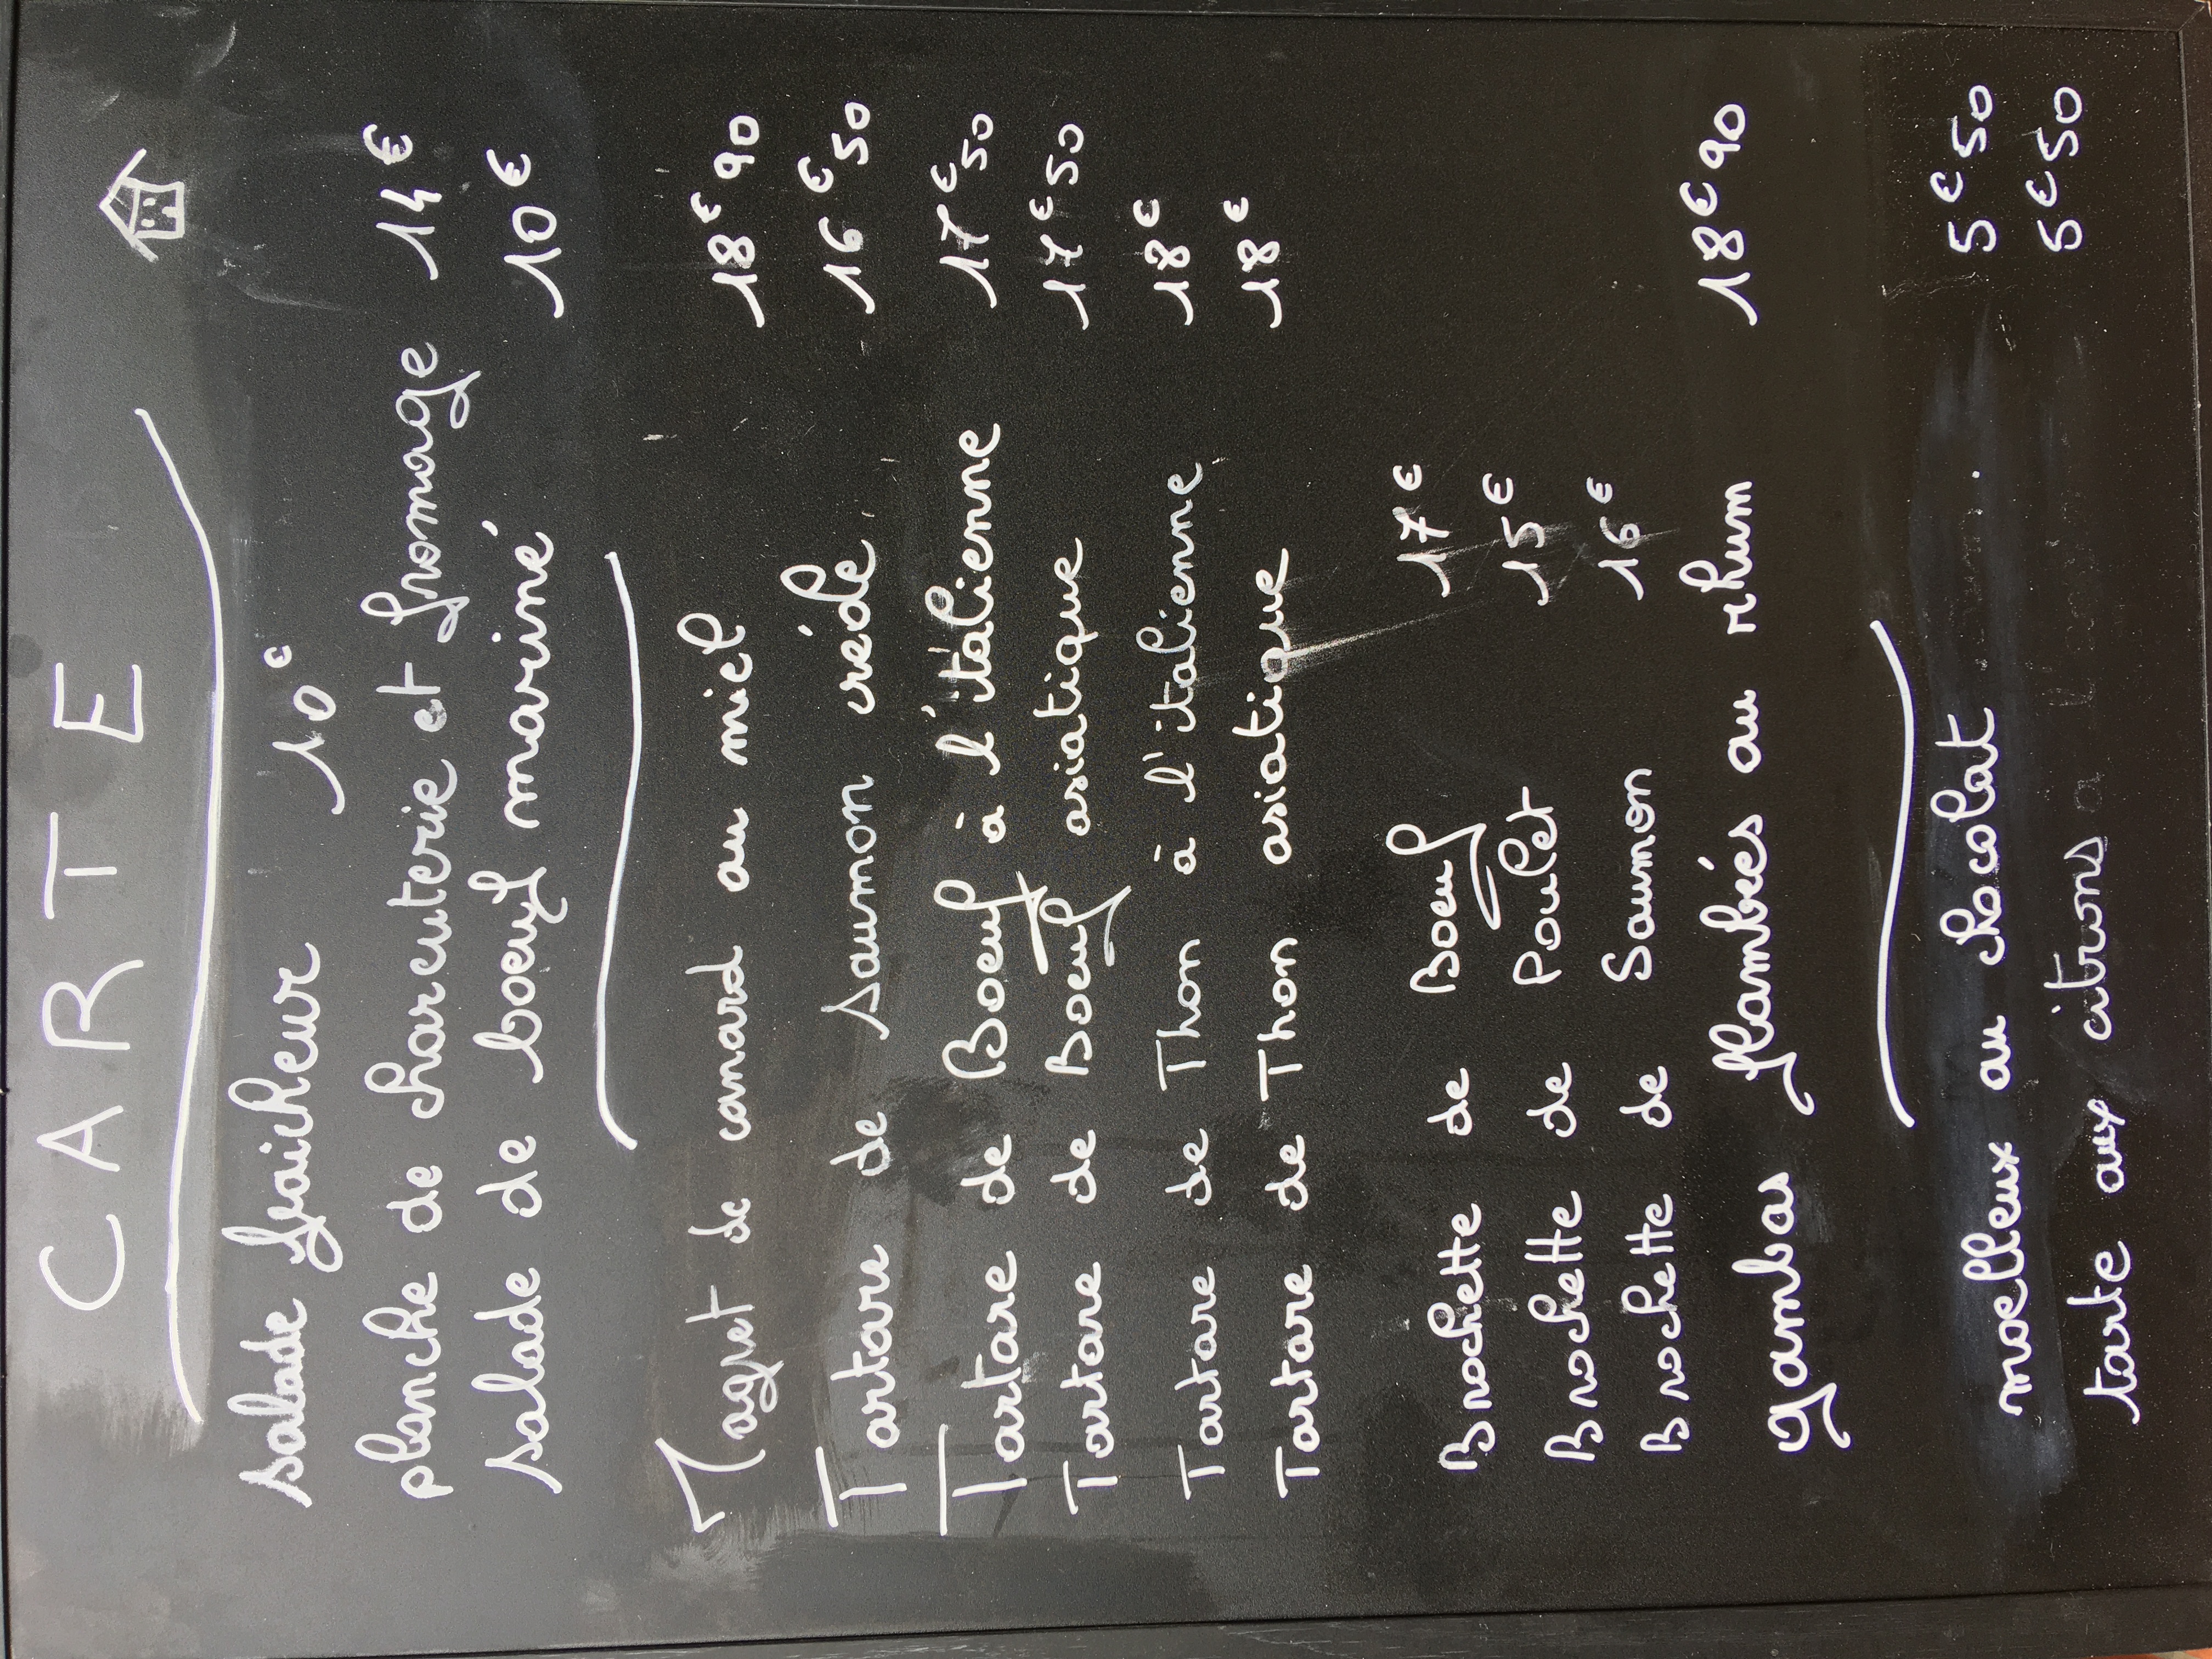 CARTE
salade fraicheur 10€
planche de charcuterie et fromage 14€
salade de boeuf mariné 10€
Magret de canard au miel 18€90
Tartare de Saumon créole 16€50
Tartare de Boeuf à l'italienne 17€50
Tartare de Boeuf asiatique 17€50
Tartare de Thon à l'italienne 18€
Tartare de Thon asiatique 18€
Brochette de Boeuf 17€
Brochette de Poulet 15€
Brochette de Saumon 16€
gambas flambées au rhum 18€90
moelleux au chocolat 5€50
tarte aux citrons 5€50